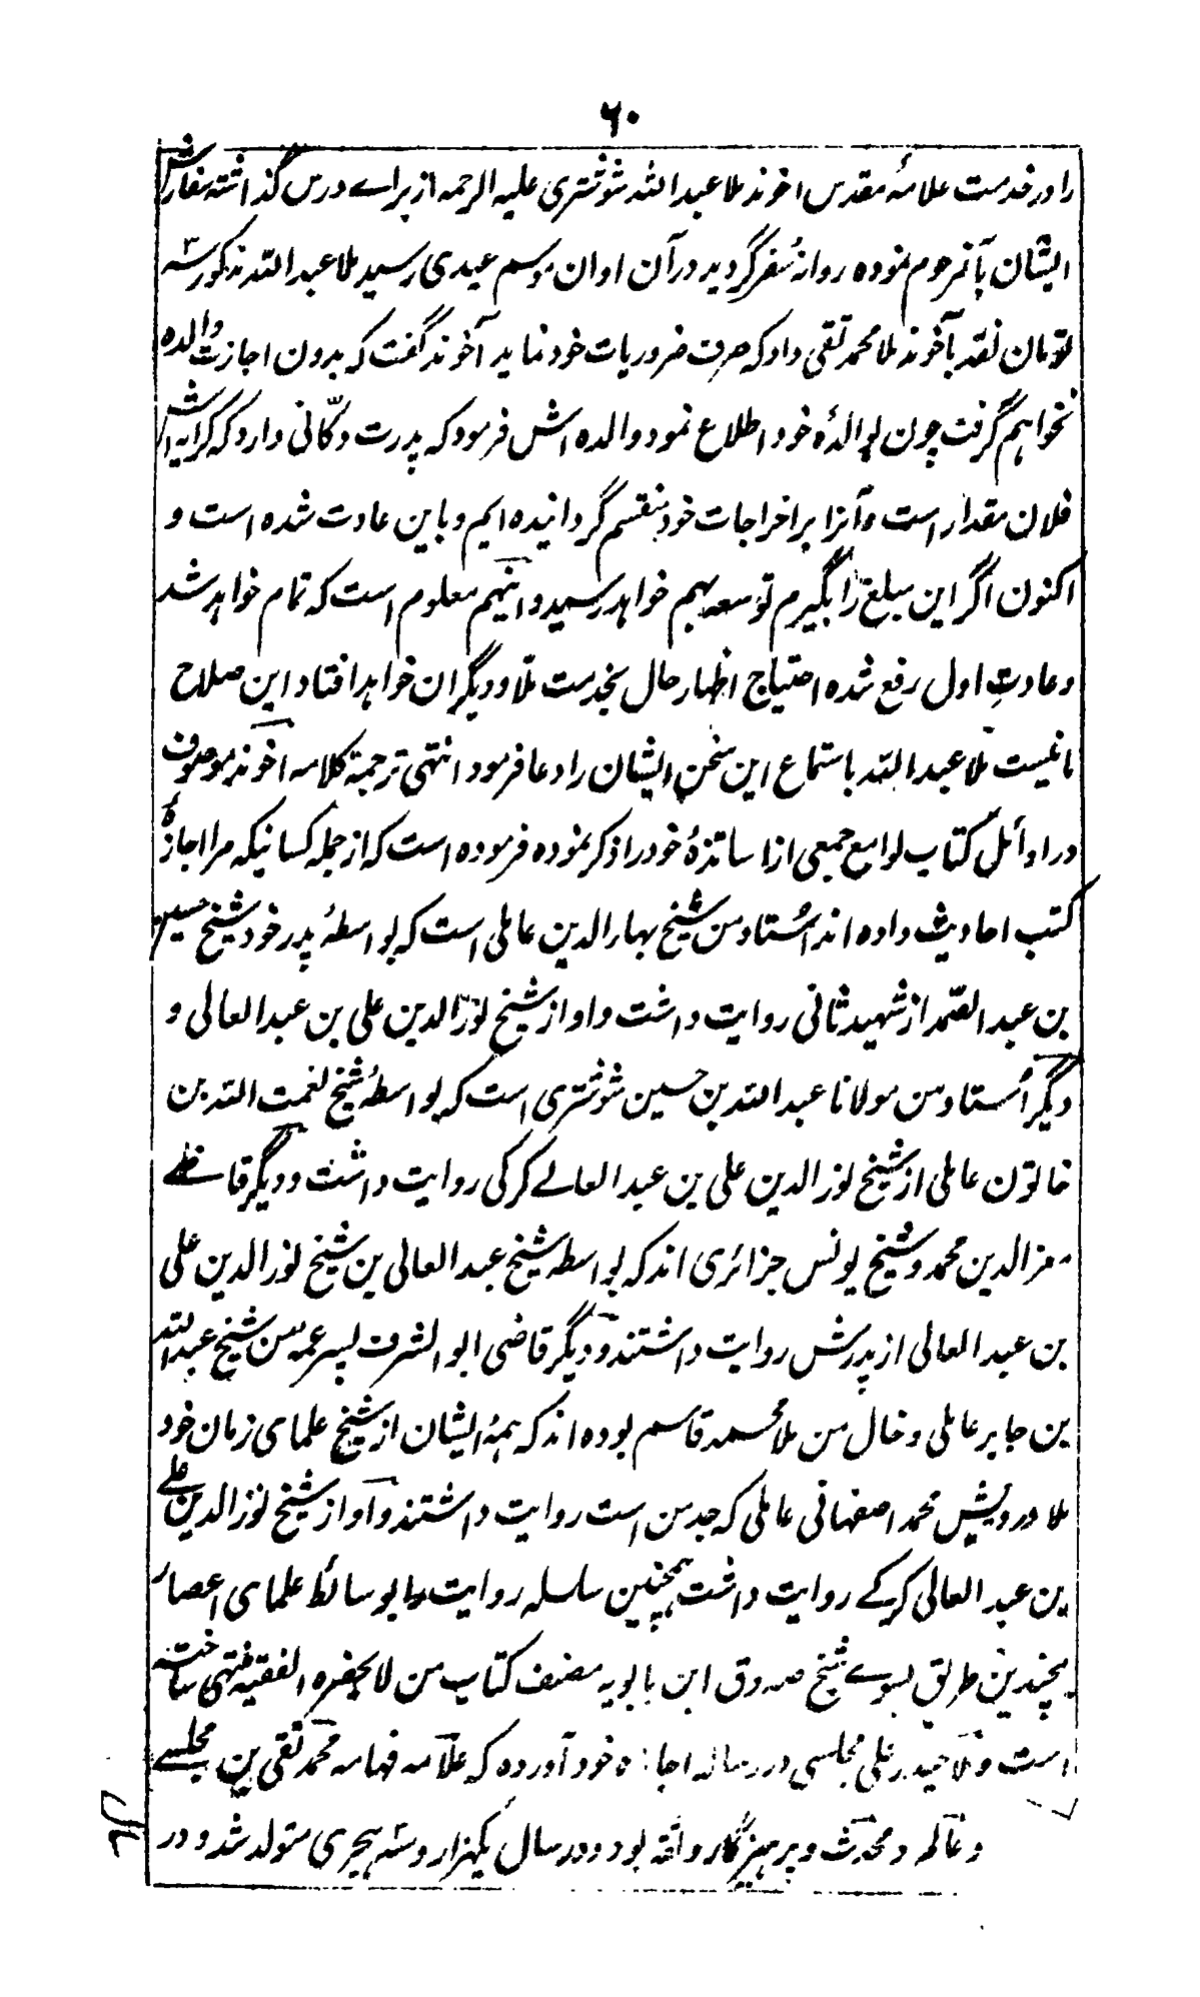 ۶۰
را در خدمت علامۀ مقدس اخوند ملا عبد الله شوشتری علیه الرحمه از براے درس گذاشته سفارش
ایشان بآنمرحوم نموده روانۀ سفر گردید در آن اوان موسم عیدی رسید ملا عبد الله مذکور سه
تومان نقد بآخوند ملا محمد تقی داد که صرف ضروریات خود نماید آخوند گفت که بدون اجازت والده
نخواهم گرفت چون بوالدۀ خود اطلاع نمود والده اش فرمود که پدرت دکّانی دارد که کرایه اش
فلان مقدار است و آنرا بر اخراجات خود منقسم گردانیده ایم و باین عادت شده است و
اکنون اگر این مبلغ را بگیرم توسعه بهم خواهد رسید و اینهم معلوم است که تمام خواهد شد
و عادتِ اول رفع شده احتیاج اظهار حال بخدمت ملا و دیگران خواهد افتاد این صلاح
ما نیست ملا عبد الله باستماع این سخن ایشان را دعا فرمود انتهی ترجمة کلامه آخوند موصوف
در اوائل کتاب لوامع جمعی از اساتذۀ خود را ذکر نموده فرموده است که از جمله کسانیکه مرا اجازۀ
کتب احادیث داده اند اُستاد من شیخ بهاء الدین عاملی است که بواسطۀ پدر خود شیخ حسین
بن عبد الصّمد از شهید ثانی روایت داشت و او از شیخ نور الدین علی بن عبد العالی و
دیگر اُستاد من مولانا عبد الله بن حسین شوشتری است که بواسطۀ شیخ نعمت الله بن
خاتون عاملی از شیخ نور الدین علی بن عبد العالے کرکی روایت داشت و دیگر قاضے
معز الدین محمد و شیخ یونس جزائری اند که بواسطه شیخ عبد العالی بن شیخ نور الدین علی
بن عبد العالی از پدرش روایت داشتند و دیگر قاضی ابو الشرف پسر عمه من شیخ عبد الله
بن جابر عاملی و خال من ملا محمد قاسم بوده اند که همۀ ایشان از شیخ علمای زمان خود
ملا درویش محمد اصفهانی عاملی که جد من است روایت داشتند و او از شیخ نور الدین علے
بن عبد العالی کرکے روایت داشت همچنین سلسله روایت را بوسائط علمای اعصار
بچندین طریق بسوے شیخ صدوق ابن بابویه مصنف کتاب من لا یحضره الفقیه منتهی ساخته
است و ملا حیدر علی مجلسی در رساله اجازه خود آورده که علّامه فهامه محمد تقی بن مجلسے
و عالم و محدث و پرهیزگار و ثقه بود و در سال یکهزار و سه هجری متولد شد و در